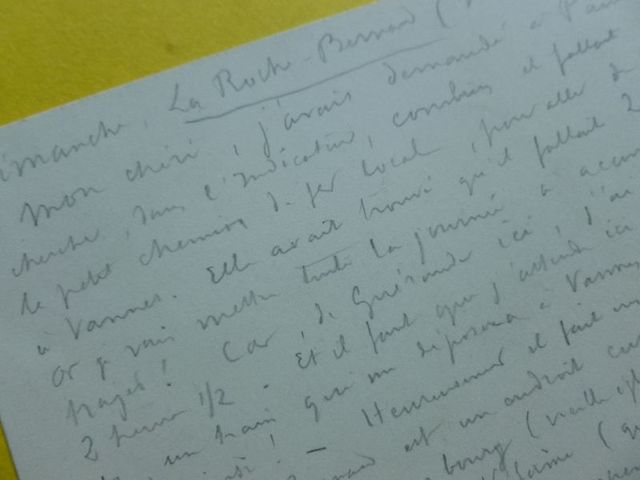 imanche, La Roche-Bernard (
Mon chéri, j'avais demandé à
cherche, dans l'Indicateur, combien il fallait
le petit chemin de fer local, pour aller de
à Vannes. Elle avait trouvé qu'il fallait 2
Or je vais mettre toute la journée à
trajet! Car, de Guérande ici, j'ai
2 heures 1/2 - Et il faut que j'attende ici
un train qui me déposera à Vannes
! - Heureusement il fait
est un endroit
bourg (vieille